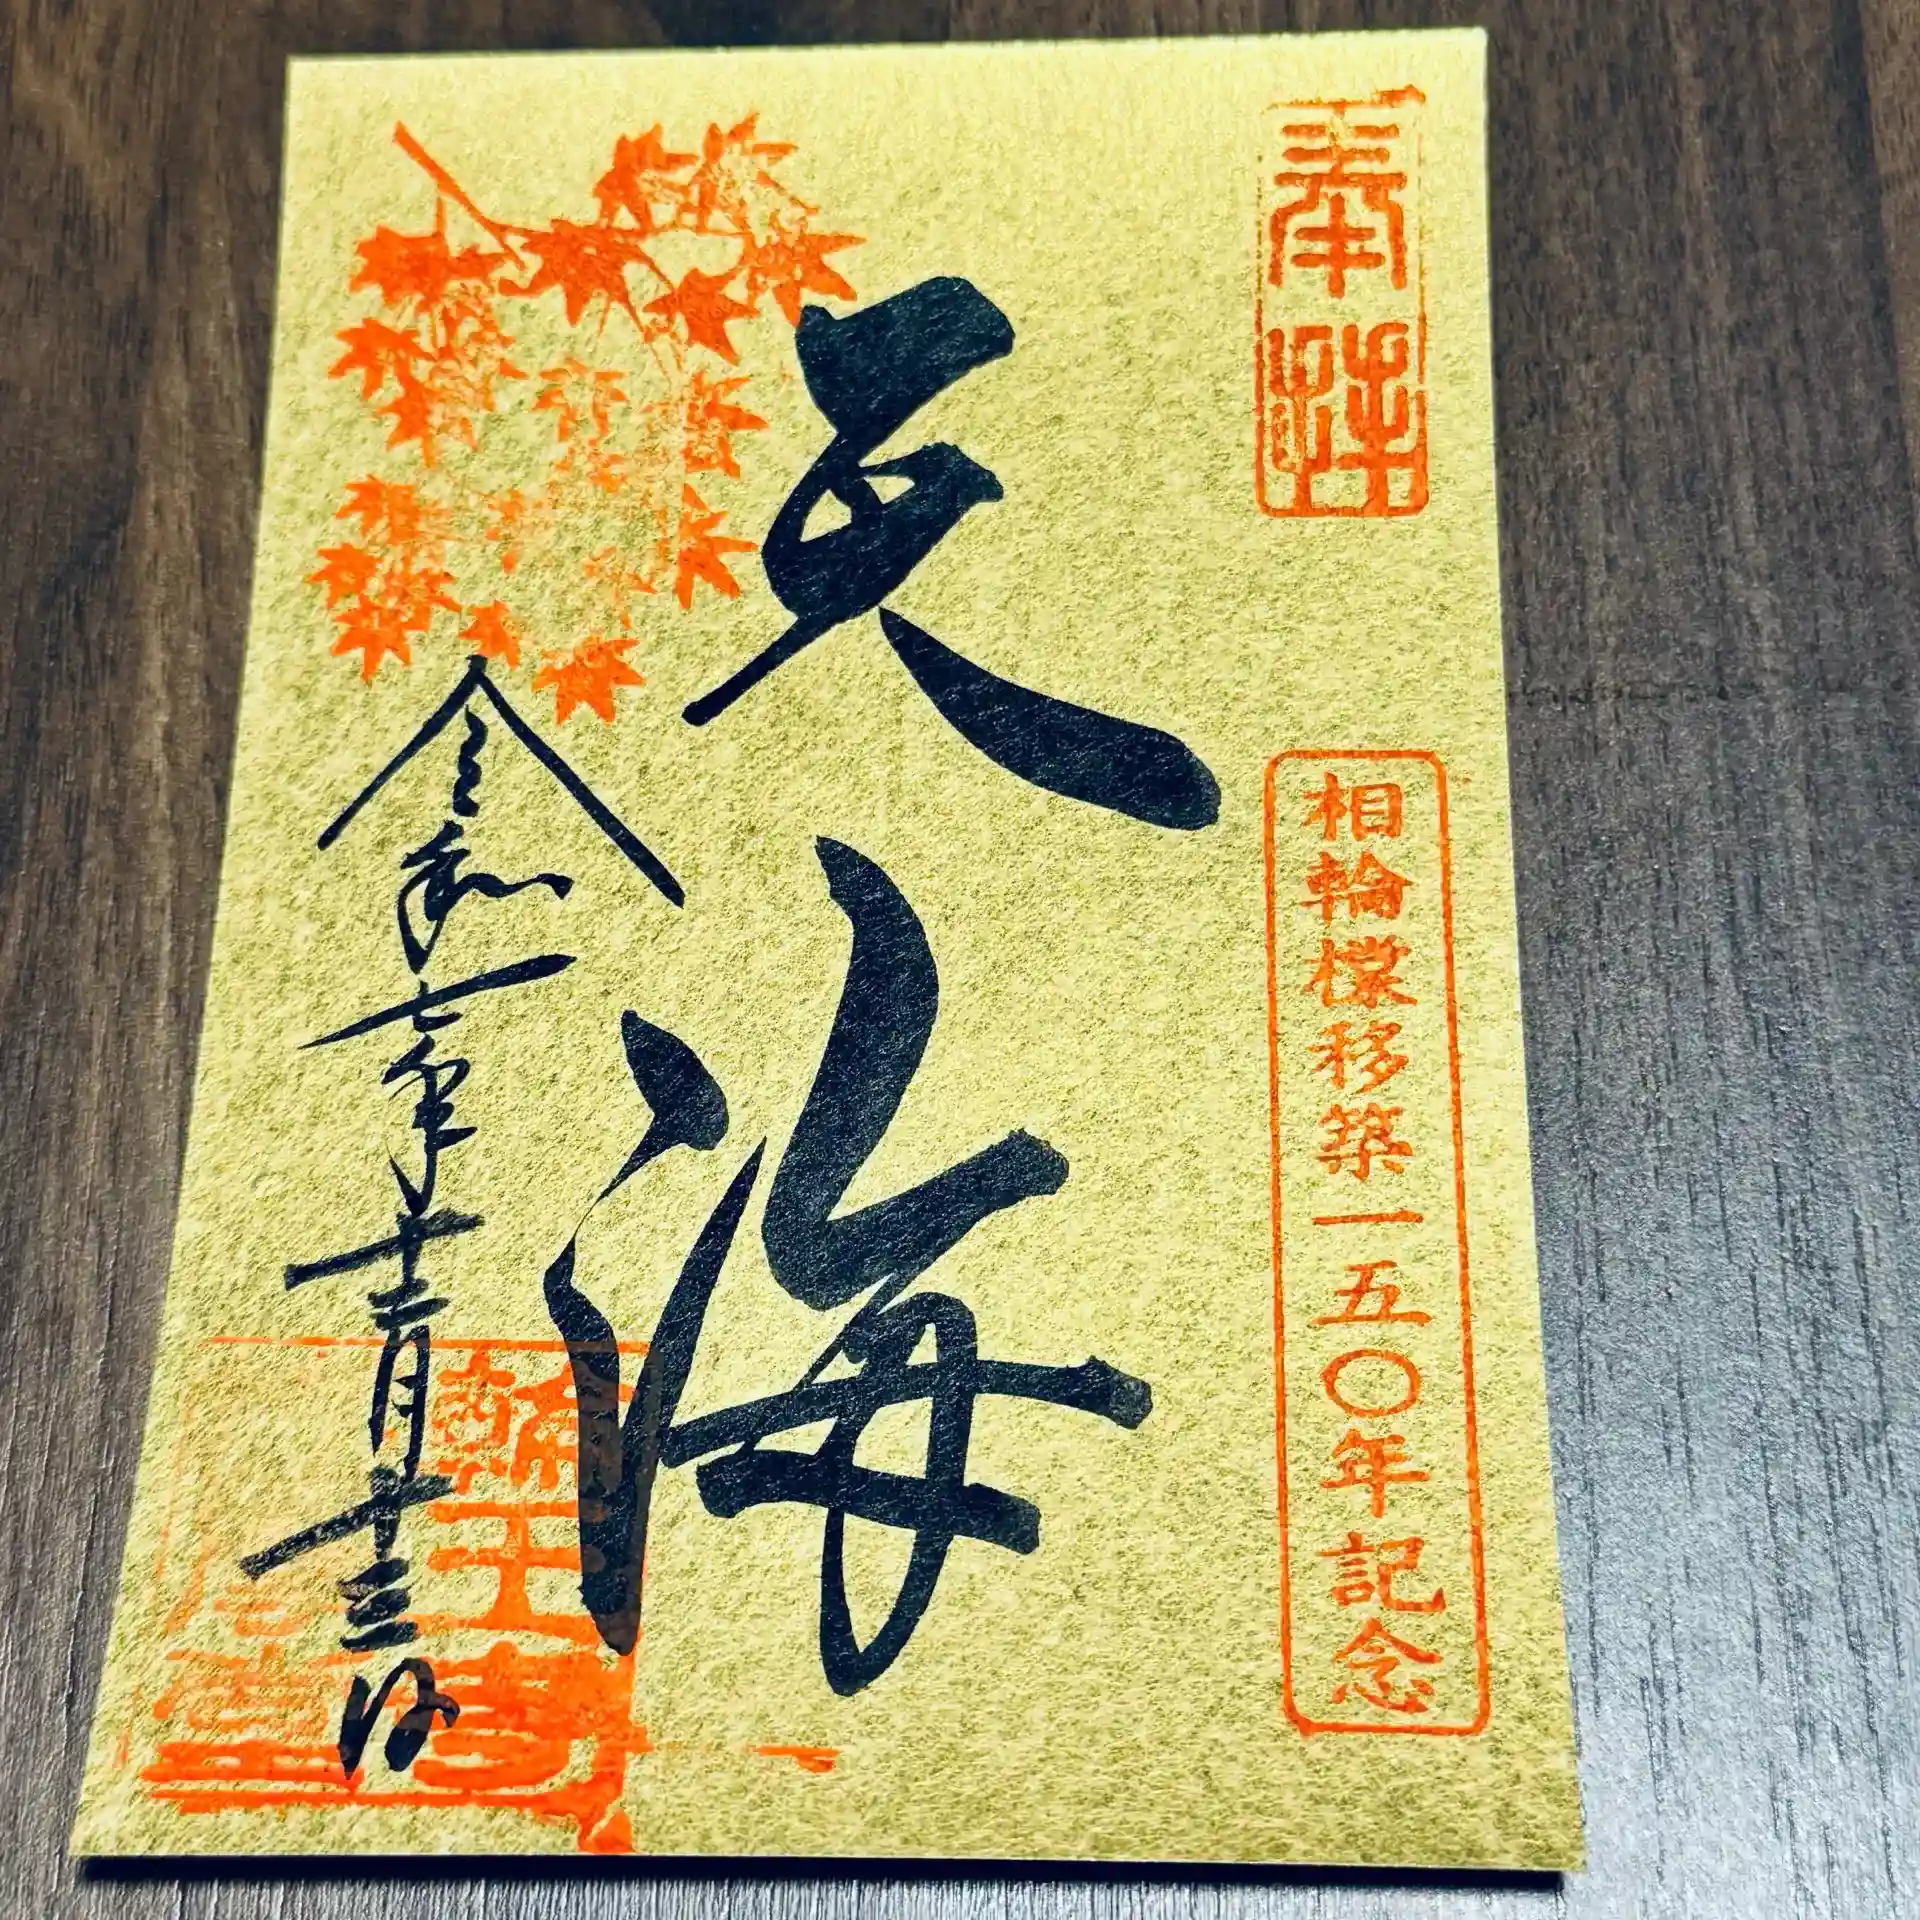 奉拝
相輪橖移築一五〇年記念
天海
令和七年十一月十三日
輪王寺